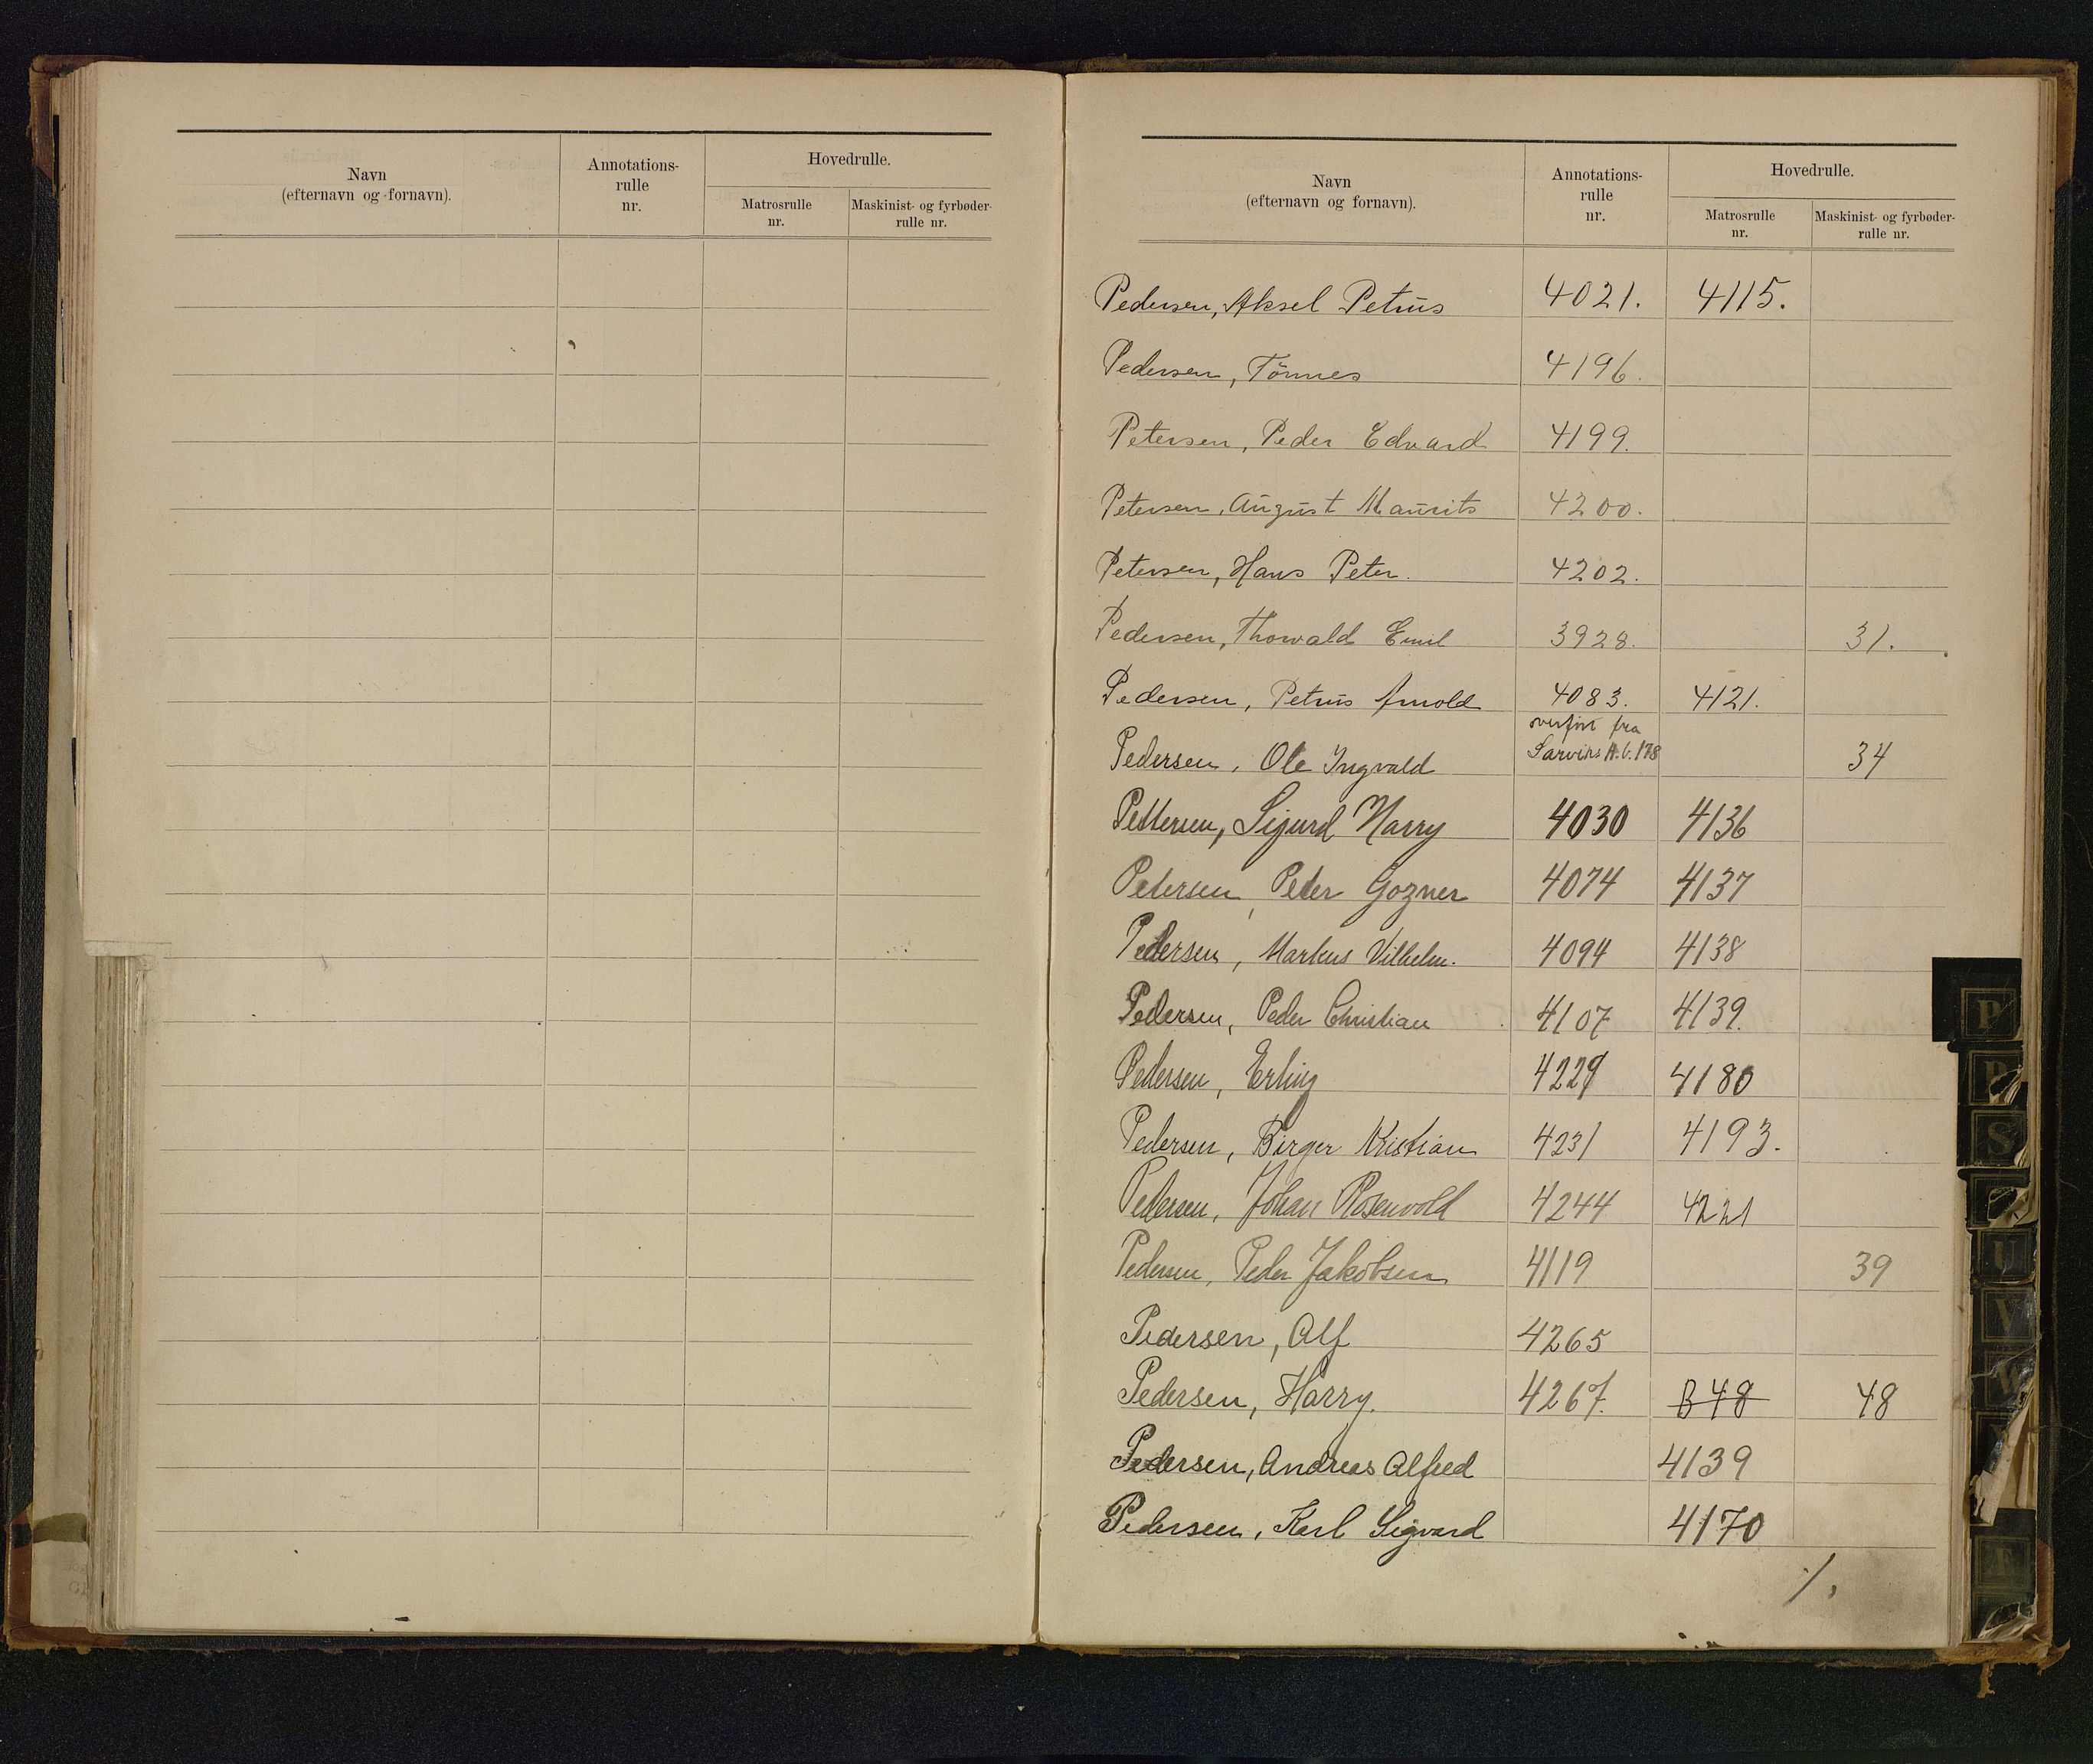 Navn
(efternavn og fornavn).
Annotations-
rulle
nr.
Hovedrulle.
Matrosrulle
nr.
Maskinist- og fyrbøder-
rulle nr.
Navn
(efternavn og fornavn).
Annotations-
rulle
nr.
Hovedrulle.
Matrosrulle
nr.
Maskinist- og fyrbøder-
rulle nr.
Pedersen, Aksel Petrus 4021. 4115.
Pedersen, Tönnes 4196.
Petersen, Peder Edvard 4199.
Petersen, August Maurits 4200.
Petersen, Hans Peter. 4202.
Pedersen, Thorvald Emil 3928. 31.
Pedersen, Petrus Arnold 4083. 4121.
overført fra
Pedersen, Ole Ingvald Larviks A.b. 178 34
Pettersen, Sigurd Harry 4030 4136
Petersen, Peter Gozner 4074 4137
Pedersen, Markus Vilhelm. 4094 4138
Pedersen, Peder Christian 4107 4139.
Pedersen, Erling 4229 4180
Pedersen, Birger Kristian 4231 4193.
Pedersen, Johan Rosenvold 4244 4221
Pedersen, Peder Jakobsen 4119 39
Pedersen, Alf 4265
Pedersen, Harry. 4267. B 48 48
Pedersen, Andreas Alfred 4139
Pedersen, Karl Sigvard 4170
P
R
S
U
V
W
Æ